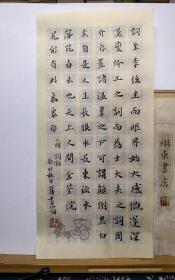 詞至李後主而眼界始大感慨遂深
遂變伶工之詞而為士大夫之詞周
介存置諸溫韋之下可謂顛倒黑白
矣自是人生長恨水長東流水
落花春去也天上人間金荃浣
花能有此氣象耶
詞話
書店